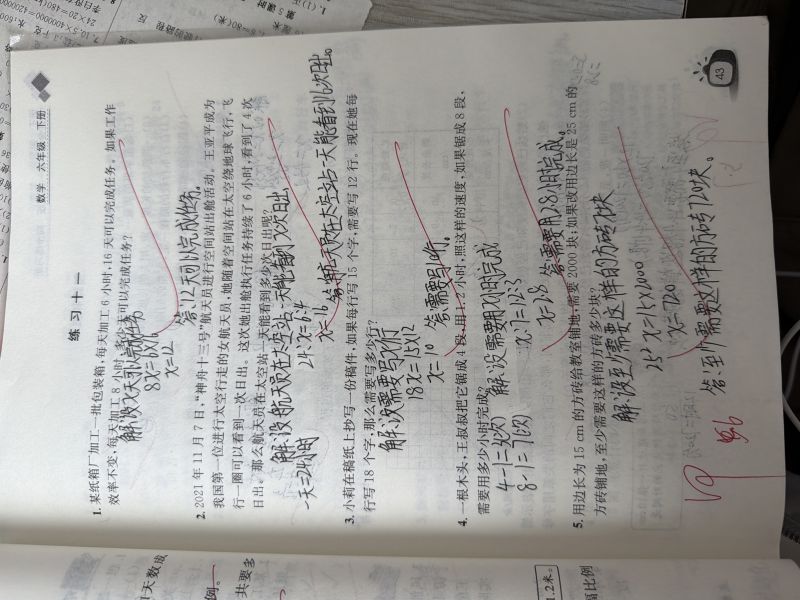 数学 六年级 下册
练习十一
1. 某纸箱厂加工一批包装箱，每天加工 6 小时，16 天可以完成任务。如果工作
效率不变，每天加工 8 小时，多少天可以完成任务？
解：设x天可以完成任务
8x=6×16
x=12
答：12天可以完成任务
2. 2021 年 11 月 7 日，“神舟十三号”航天员进行空间站出舱活动。王亚平成为
我国第一位进行太空行走的女航天员，她随着空间站在太空绕地球飞行，飞
行一圈可以看到一次日出。这次她出舱执行任务持续了 6 小时，看到了 4 次
日出。那么航天员在太空站一天能看到多少次日出呢？
一天=24小时
解：设航天员在太空站一天能看到x次日出
24:x=6:4
x=16
答：航天员在太空站一天能看到16次日出。
3. 小莉在稿纸上抄写一份稿件，如果每行写 15 个字，需要写 12 行。现在她每
行写 18 个字，那么需要写多少行？
解：设需要写x行
18x=15×12
x=10
答：需要写10行。
4. 一根木头，王叔叔把它锯成 4 段，用 1.2 小时，照这样的速度，如果锯成 8 段，
需要用多少小时完成？
4-1=3(次)
8-1=7(次)
解：设需要用x小时完成
x:7=1.2:3
x=2.8
答：需要用2.8小时完成。
5. 用边长为 15 cm 的方砖给教室铺地，需要 2000 块；如果改用边长是 25 cm 的
方砖铺地，至少需要这样的方砖多少块？
解：设至少需要这样的方砖x块
x=720
答：至少需要这样的方砖720块。
43